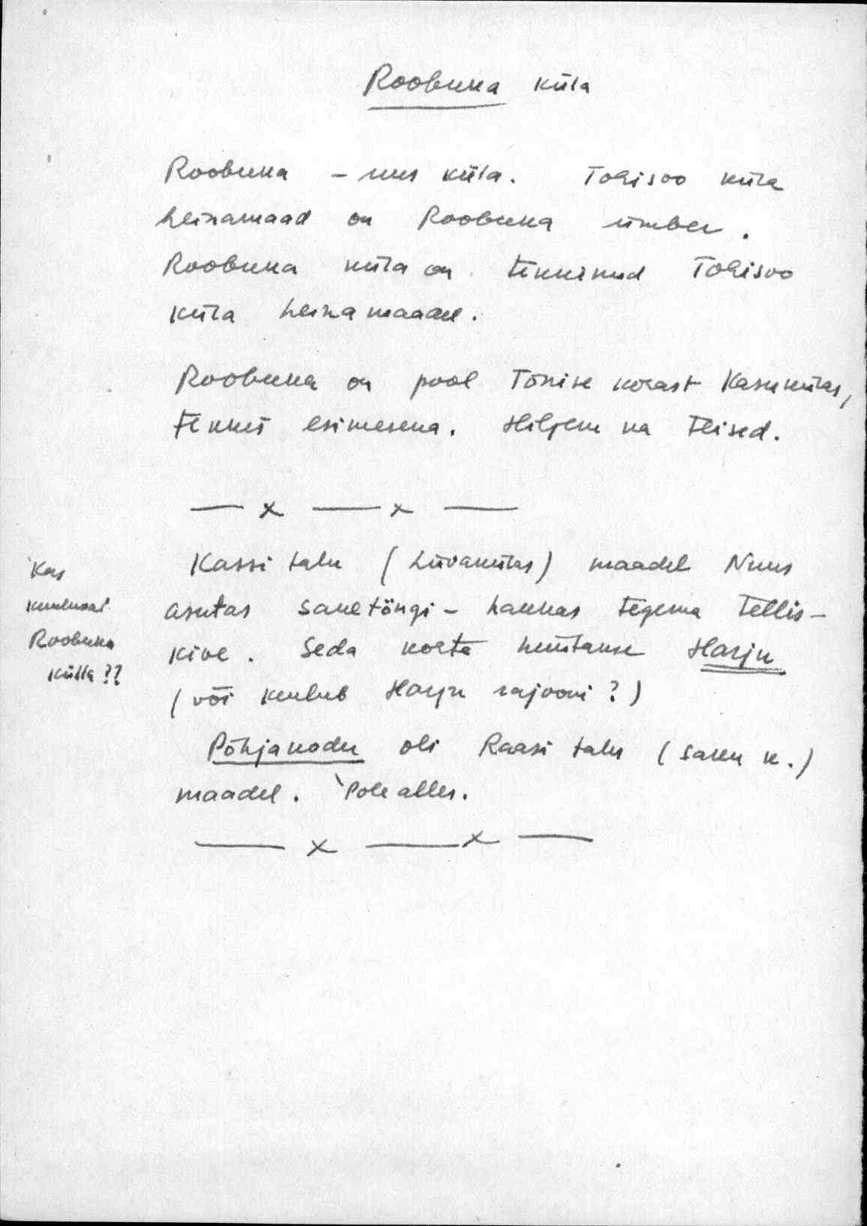 Roobuka küla
Roobuka – uus küla. Tohisoo küla
heinamaad on Roobuka ümber.
Roobuka küla on tekkinud Tohisoo
küla heinamaadel.
Roobuka on pool Tõnise kohast Kasukülas,
Tekkis esimesena. Hiljem ka teised.
— x — x —
Kassi talu (Liivakülas) maadel Nuus
asutas savetöngi – hakkas tegema tellis-
kive. Seda kohta hüütakse Harju
(või kuulub Harju rajooni?)
Kas
kuulusai
Roobuka
külla??
Põhjakodu oli Raasi talu (Saku k.)
maadel. Pole alles.
— x — x —